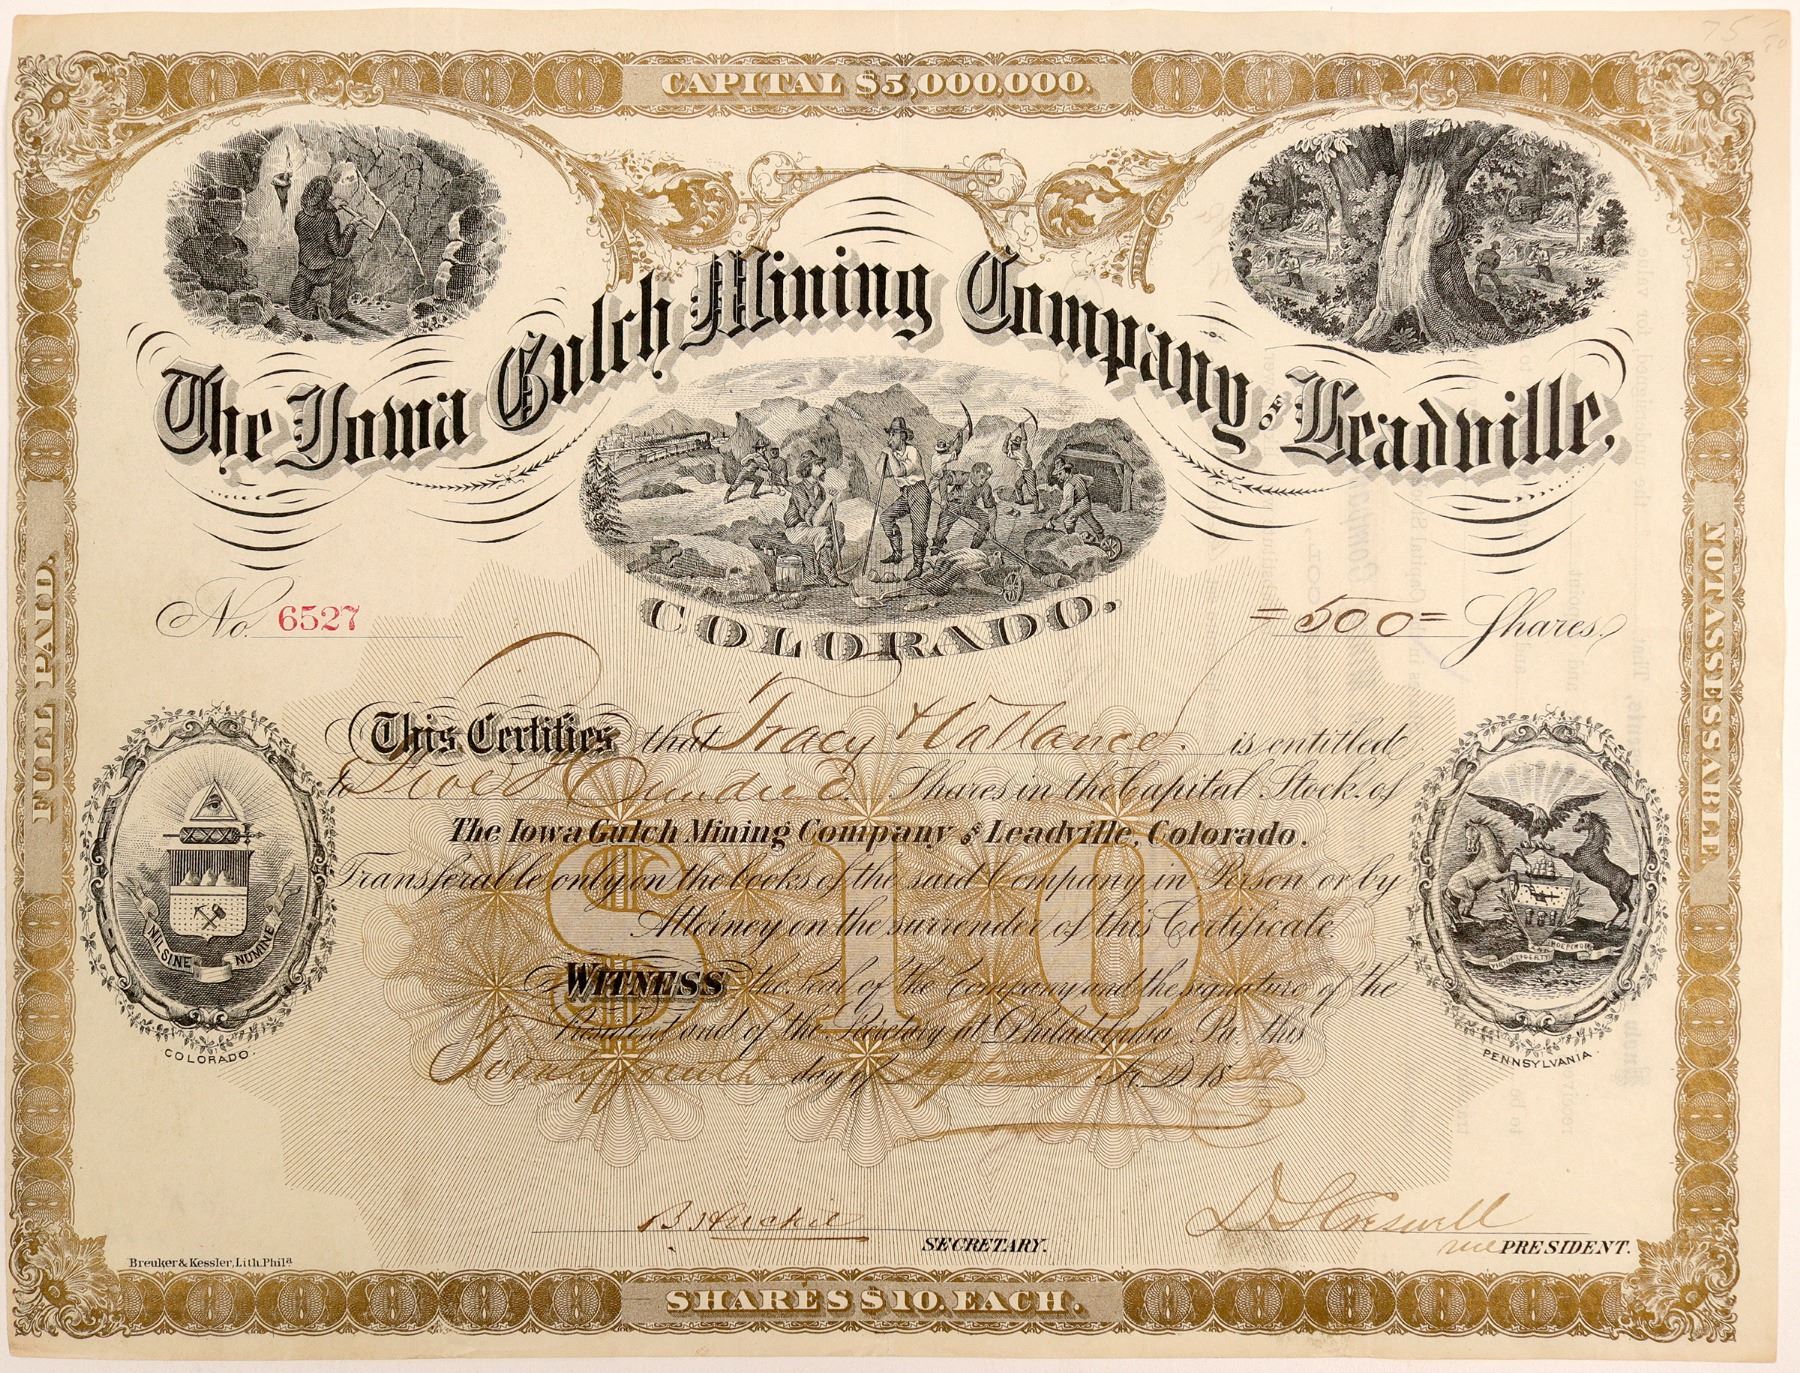 75
CAPITAL $5,000,000.
The Iowa Gulch Mining Company OF Leadville,
COLORADO.
No. 6527
=500= Shares.
FULL PAID.
NOTASSESSABLE
This Certifies that Tracy & Wallance. is entitled
to Five Hundred. Shares in the Capital Stock of
The Iowa Gulch Mining Company of Leadville, Colorado.
Transferable only on the books of the said Company in Person or by
Attorney on the surrender of this Certificate.
WITNESS the Seal of the Company and the signature of the
President and of the Secretary at Philadelphia Pa. this
day of A.D. 18
$10
NIL SINE NUMINE
COLORADO.
VIRTUE LIBERTY AND INDEPENDE
PENNSYLVANIA.
SECRETARY.
D S Creswell
vice PRESIDENT.
Breuker & Kessler, Lith. Phila
SHARES $10. EACH.